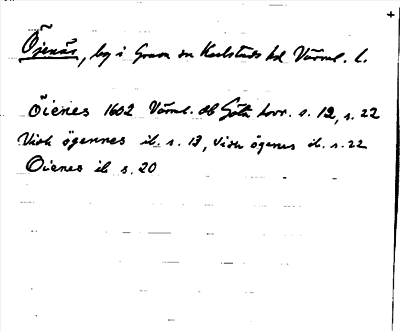 Öjenäs, by i Grava sn Karlstads hd Värml. l.
Öienes 1602 Värml. ab Göta hovr. s. 12, s. 22
Visth ögennes ib. s. 13, Visth ögenes ib. s. 22
Öienes ib s. 20